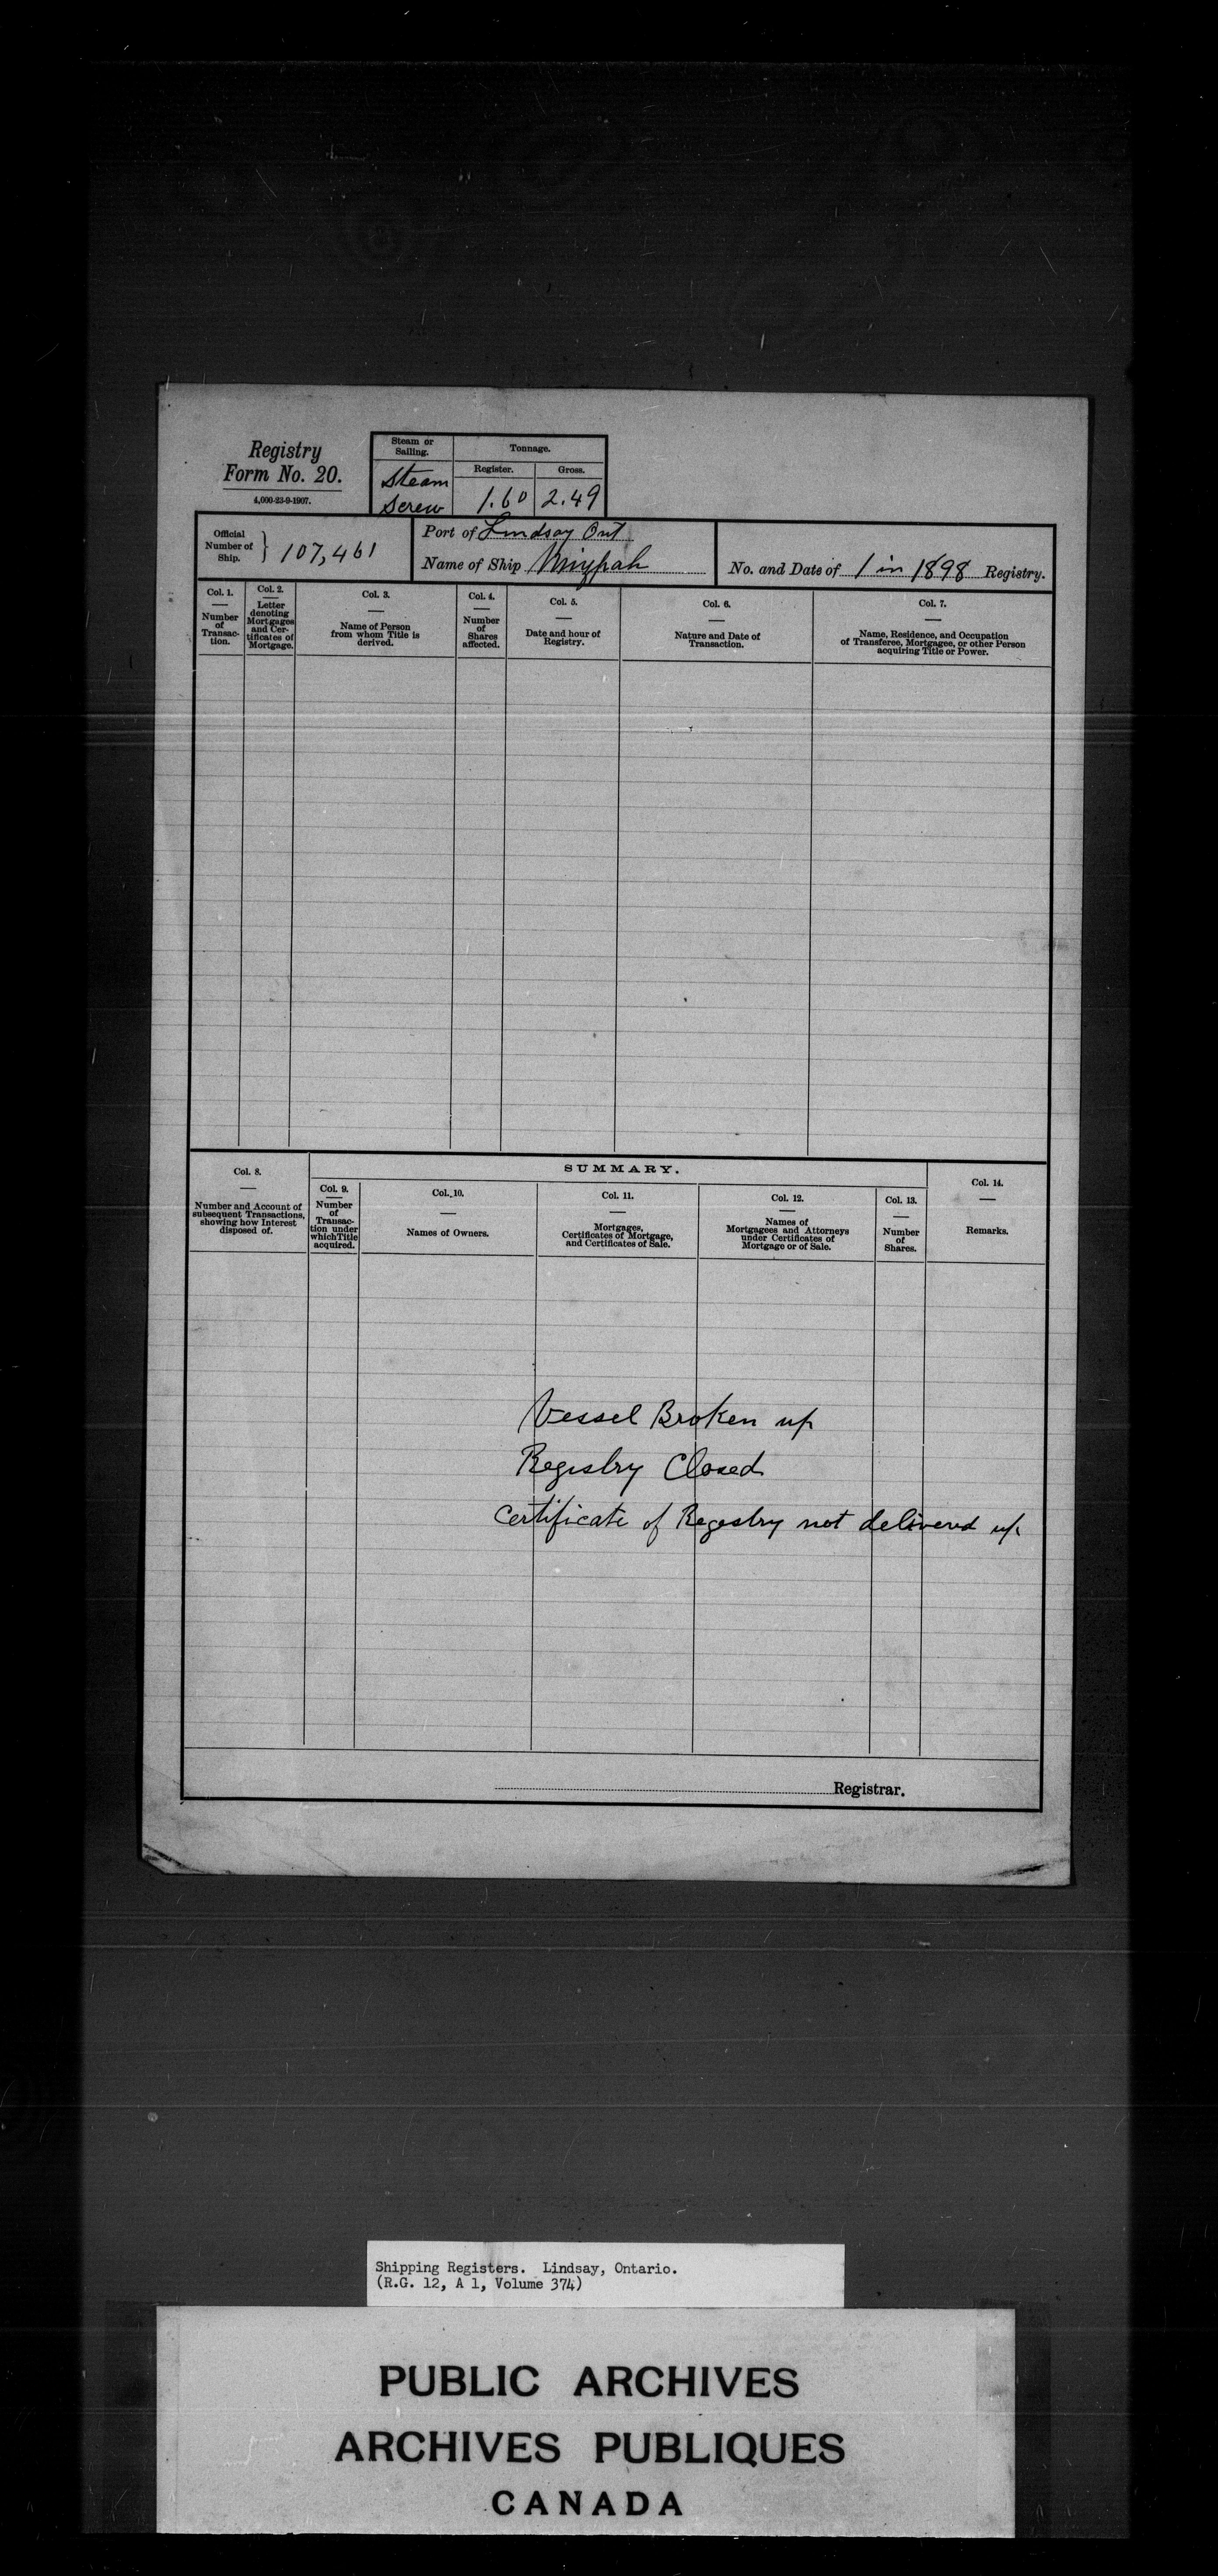 Registry
Form No. 20.
4,000-23-9-1907.
Steam or
Sailing.
Tonnage.
Register.
Gross.
Steam
Screw
1.60
2.49
Official
Number of
Ship.
107,461
Port of Lindsay Ont
Name of Ship Mizpah
No. and Date of 1 in 1898 Registry.
Col. 1.
Number
of
Transac-
tion.
Col. 2.
Letter
denoting
Mortgages
and Cer-
tificates of
Mortgage.
Col. 3.
Name of Person
from whom Title is
derived.
Col. 4.
Number
of
Shares
affected.
Col. 5.
Date and hour of
Registry.
Col. 6.
Nature and Date of
Transaction.
Col. 7.
Name, Residence, and Occupation
of Transferee, Mortgagee, or other Person
acquiring Title or Power.
Col. 8.
Number and Account of
subsequent Transactions,
showing how Interest
disposed of.
SUMMARY.
Col. 9.
Number
of
Transac-
tion under
which Title
acquired.
Col. 10.
Names of Owners.
Col. 11.
Mortgages,
Certificates of Mortgage,
and Certificates of Sale.
Col. 12.
Names of
Mortgagees and Attorneys
under Certificates of
Mortgage or of Sale.
Col. 13.
Number
of
Shares.
Col. 14.
Remarks.
Vessel Broken up
Registry Closed
Certificate of Registry not delivered up
Registrar.
Shipping Registers. Lindsay, Ontario.
(R.G. 12, A 1, Volume 374)
PUBLIC ARCHIVES
ARCHIVES PUBLIQUES
CANADA